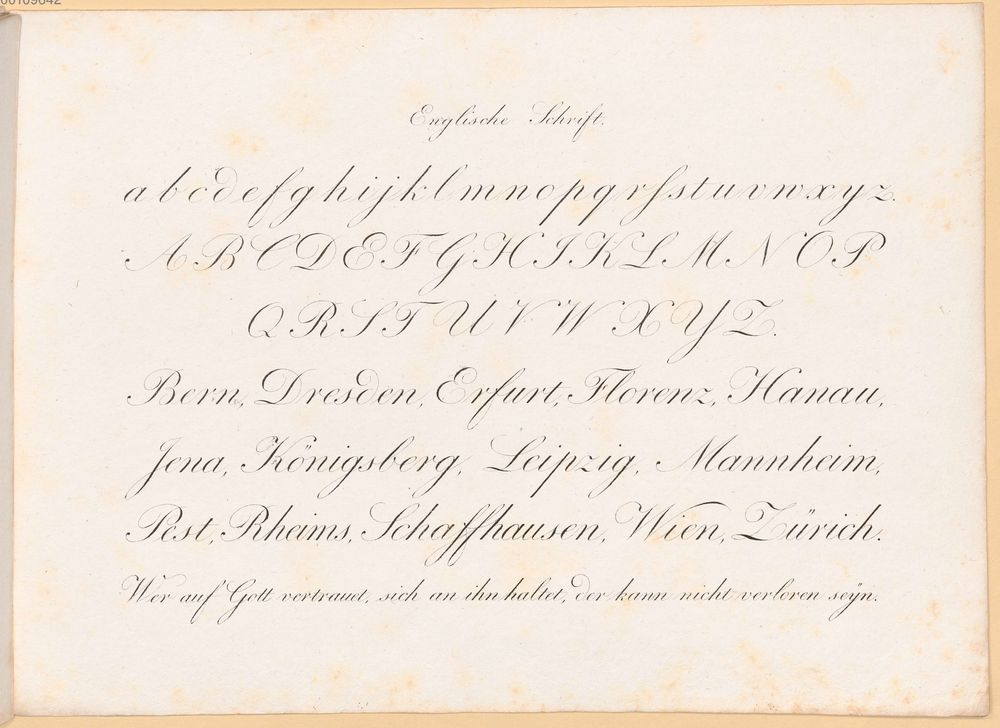 Englische Schrift.
a b c d e f g h i j k l m n o p q r ſ s t u v w x y z.
A B C D E F G H I K L M N O P
Q R S T U V W X Y Z.
Bern, Dresden, Erfurt, Florenz, Hanau,
Jena, Königsberg, Leipzig, Mannheim,
Pest, Rheims, Schaffhausen, Wien, Zürich.
Wer auf Gott vertrauet, sich an ihn haltet, der kann nicht verloren seÿn.